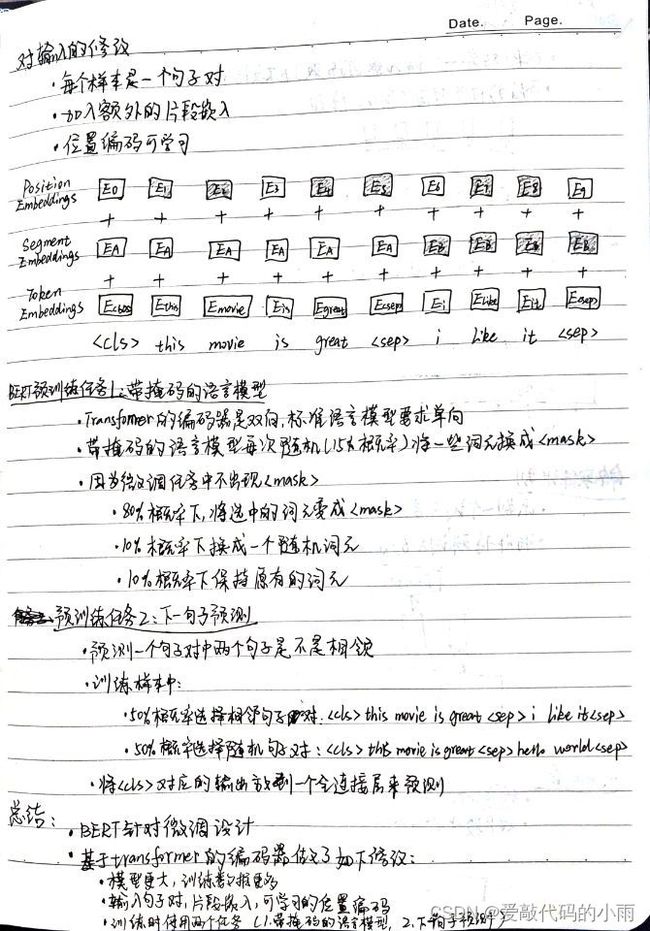 Date. Page.
对输入的修改
·每个样本是一个句子对
·加入额外的片段嵌入
·位置编码可学习
Position Embeddings E0 E1 E2 E3 E4 E5 E6 E7 E8 E9
+ + + + + + + + + +
Segment Embeddings EA EA EA EA EA EA EB EB EB EB
+ + + + + + + + + +
Token Embeddings E<cls> Ethis Emovie Eis Egreat E<sep> Ei Elike Eit E<sep>
<cls> this movie is great <sep> i like it <sep>
BERT预训练任务1:带掩码的语言模型
·Transformer的编码器是双向,标准语言模型要求单向
·带掩码的语言模型每次随机(15%概率)将一些词元换成<mask>
·因为微调任务中不出现<mask>
·80%概率下,将选中的词元变成<mask>
·10%概率下换成一个随机词元
·10%概率下保持原有的词元
预训练任务2:下一句子预测
·预测一个句子对中两个句子是不是相邻
·训练样本中:
·50%概率选择相邻句子对:<cls>this movie is great<sep>i like it<sep>
·50%概率选择随机句子对:<cls>this movie is great<sep>hello world<sep>
·将<cls>对应的输出放到一个全连接层来预测
总结:
·BERT针对微调设计
·基于transformer的编码器做了如下修改:
·模型更大,训练数据更多
·输入句子对,片段嵌入,可学习的位置编码
·训练时使用两个任务(1.带掩码的语言模型,2.下一句子预测)
CSDN @爱敲代码的小雨